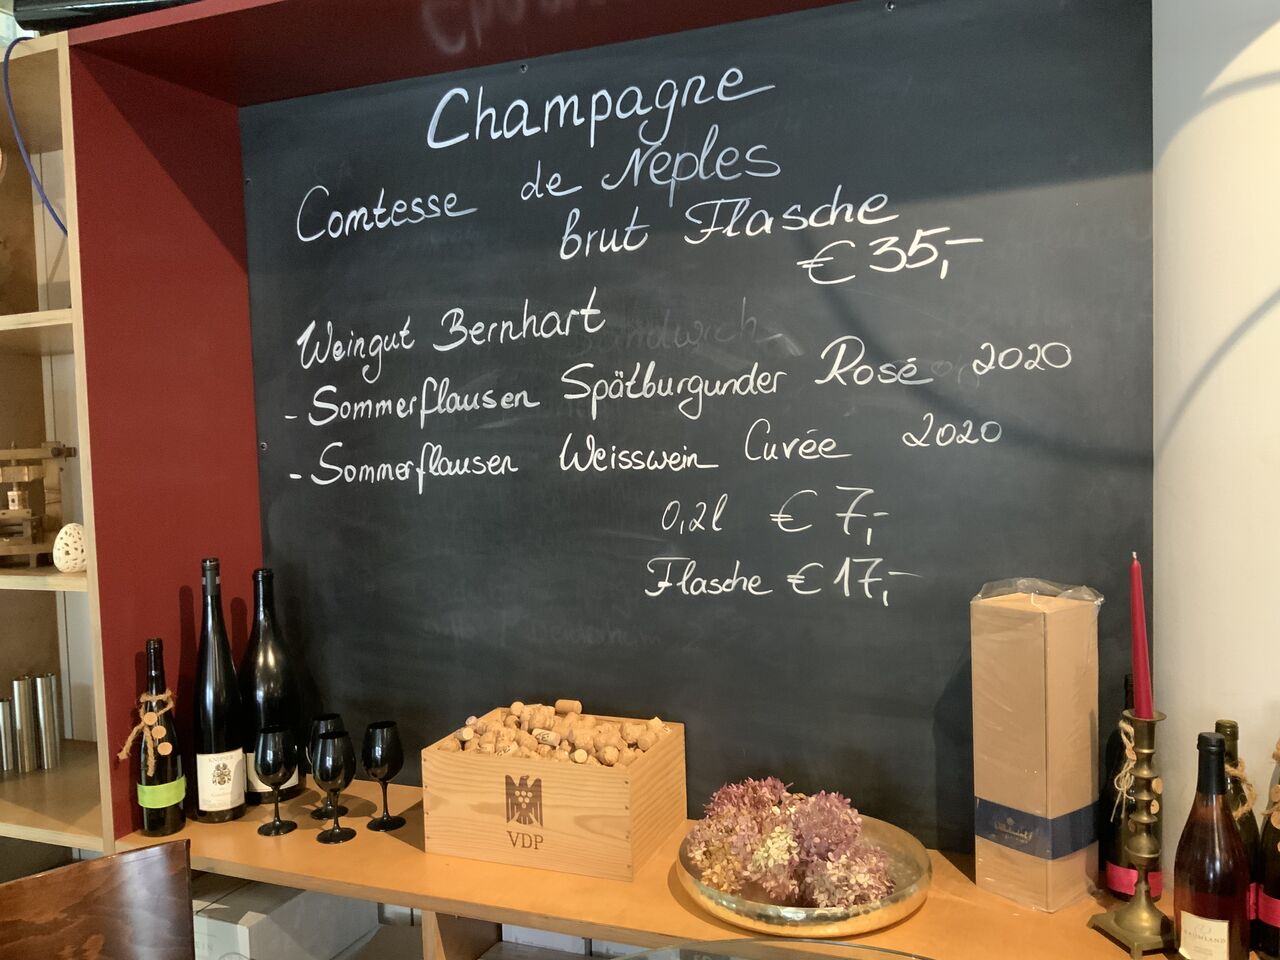 Champagne
Comtesse de Neples
brut Flasche
€ 35,-
Weingut Bernhart
- Sommerflausen Spätburgunder Rosé 2020
- Sommerflausen Weisswein Cuvée 2020
0,2l € 7,-
Flasche € 17,-
VDP